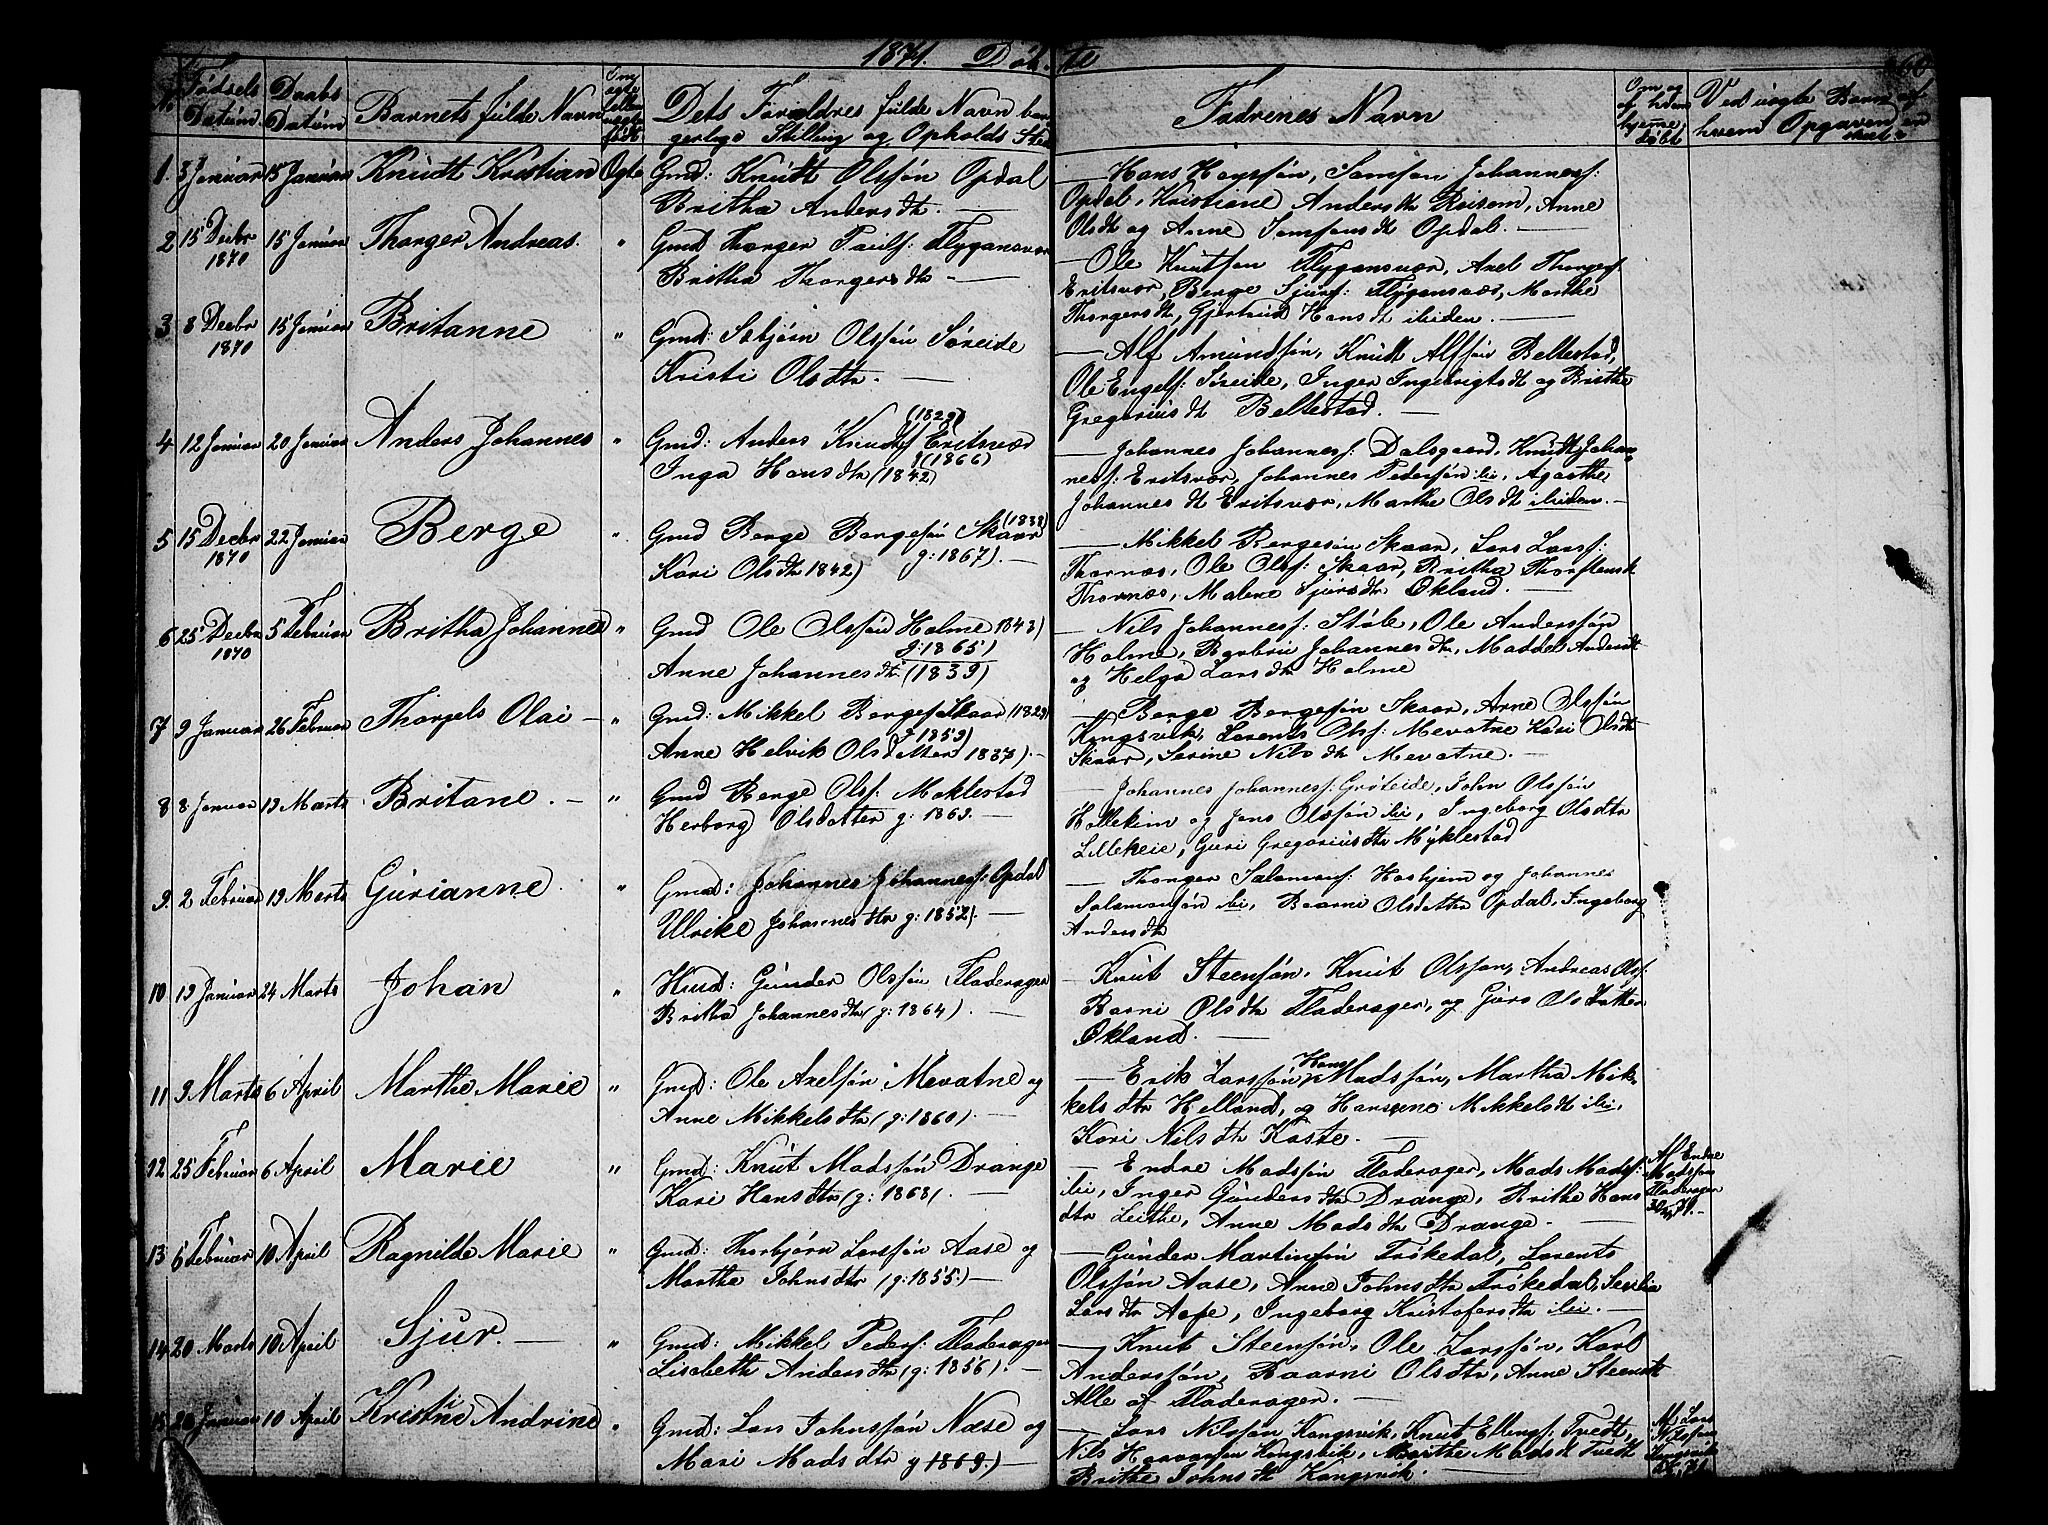 1871. Döbte
No
Födsels Datum
Daabs Datum
Barnets fulde Navn
Om ægte eller uægte født
Dets Forældres fulde Navn borgerlige Stilling og Opholds Sted
Fadrenes Navn
Om og af hvem hjemme döbt
Ved uægte Børn af hvem Opgaven
1. 3 Januar 15 Januar Knudt Kristian Ægte Gmd: Knudt Olssøn Opdal
Britha Andersdtr. —
— Hans Hanssøn, Samson Johannesf:
Opdal, Kristiane Andersdtr Risem, Anne
Olsdt og Anne Samsonsdt Opdal. —
2 15 Decbr 1870 15 Januar Thorger Andreas. " Gmd Thorger Paulf: Flygansvær
Britha Thorgersdtr —
— Ole Knutsøn Flygansvær, Axel Thorgerf:
Eritsvær, Berge Sjurf: Flygansvær, Marthe
Thorgersdt, Gjertrud Hansdt ibiden. —
3 8 Decbr 1870 15 Januar Britanne " Gmd: Sebjørn Olssøn Søreide
Kristi Olsdtr. —
— Alf Amundsøn, Knudt Alfsøn Bellestad,
Ole Engelf: Søreide, Inger Ingebrigtsdt og Brithe
Gregoriusdt Bellestad. —
4 12 Januar 20 Januar Anders Johannes " Gmd: Anders Knudsf (1829) Eritsvær
Inga Hansdtr (1842) g (1866)
— Johannes Johannesf: Dalsgaard, Knudt Johannesf: Eritsvær, Johannes Pedersøn ibi, Agathe
Johannesdt Eritsvær, Marthe Olsdt ibiden. —
5 15 Decbr 1870 22 Januar Berge " Gmd Berge Bergesøn Skaar (1838)
Kari Olsdtr 1842) g: 1867). —
— Mikkel Bergesøn Skaar, Lars Larsf:
Thornæs, Ole Olsf: Skaar, Britha Thorstensdt
Thornæs, Malene Sjursdtr Økland. —
6 25 Decbr 1870 5 Februar Britha Johanne " Gmd Ole Olssøn Holme 1843)
g: 1865)
Anne Johannesdtr. (1839)
— Nils Johannesf: Støle, Ole Anderssøn
Holme, Barbru Johannesdtr, Madde Andersdt
og Helga Larsdtr Holme
7 9 Januar 26 Februar Thorgels Olai — " Gmd: Mikkel Bergesf Skaar (1829)
g 1859)
Anne Helvik Olsdatter 1837). —
— Berge Bergesøn Skaar, Arne Olssøn
Kongsvik, Lorents Olsf: Mevatne Kari Olsdtr
Skaar, Serine Nilsdtr Mevatne. —
8 8 Januar 19 Marts Britane. — " Gmd Berge Olsf: Moklestad
Herborg Olsdatter g: 1863. —
— Johannes Johannesf: Grøteide, John Olssøn
Hallekim og Jens Olssøn ibi, Ingeborg Olsdtr
Lillekeie, Guri Gregoriusdtr Myklestad
9. 2 Februar 19 Marts Gurianne. " Gmd: Johannes Johannesf: Opdal
Ulrike Johannesdtr g: 1852). —
— Thorger Salamonf: Hashjem og Johannes
Salamonsøn ibi, Baarni Olsdattr Opdal, Ingeborg
Andersdtr
10 19 Januar 24 Marts Johan " Hmd: Gunder Olssøn Fladerager
Britha Johannesdtr (g: 1864). —
— Knut Steensøn, Knut Olsson, Andreas Olsf:
Barni Olsdtr Fladerager, og Guro Olsdatter
Økland. —
11 9 Marts 6 April Marthe Marie " Gmd: Ole Axelsøn Mevatne og
Anne Mikkelsdtr (g: 1860). —
— Erik Larssøn, Hans Madssøn, Martha Mikkelsdtr Helland, og Hansine Mikkelsdt ibi,
Kari Nilsdtr Kaste. —
12 25 Februar 6 April Marie " Gmd: Knut Madssøn Drange
Kari Hansdtr (g: 1868). —
— Endre Madssøn Fladerager, Mads Madsf:
ibi, Inger Gundersdtr Drange, Brithe Hansdtr Leithe, Anne Madsdtr Drange. —
Af Endre Madssøn Fladerager
13 6 Februar 10 April Ragnilde Marie " Gmd: Thorbjørn Larssøn Aase og
Marthe Johnsdtr (g: 1855.) —
— Gunder Martinsøn Frøkedal, Lorents
Olssøn Aase, Anne Johnsdtr Frøkedal,
Larsdtr Aase, Ingeborg Kristofersdtr ibi. —
14 20 Marts 10 April Sjur. — " Gmd: Mikkel Pederf: Fladerager
Lisebeth Andersdtr (g: 1856). —
— Knut Steensøn, Ole Larssøn, Karl
Anderssøn, Baarni Olsdtr, Anne Steensdt
Alle af Fladerager. —
15 20 Januar 10 April Kristine Andrine " Gmd: Lars Johnssøn Næse og
Mari Madsdtr g 1869.) —
— Lars Nilssøn Kongsvik, Knut Ellingf: Tvedt,
Nils Kongsvik, Marthe Madsdt Tvedt
Brithe Johnsdt Kongsvik. —
Af Lars Nilssøn Kongsvik